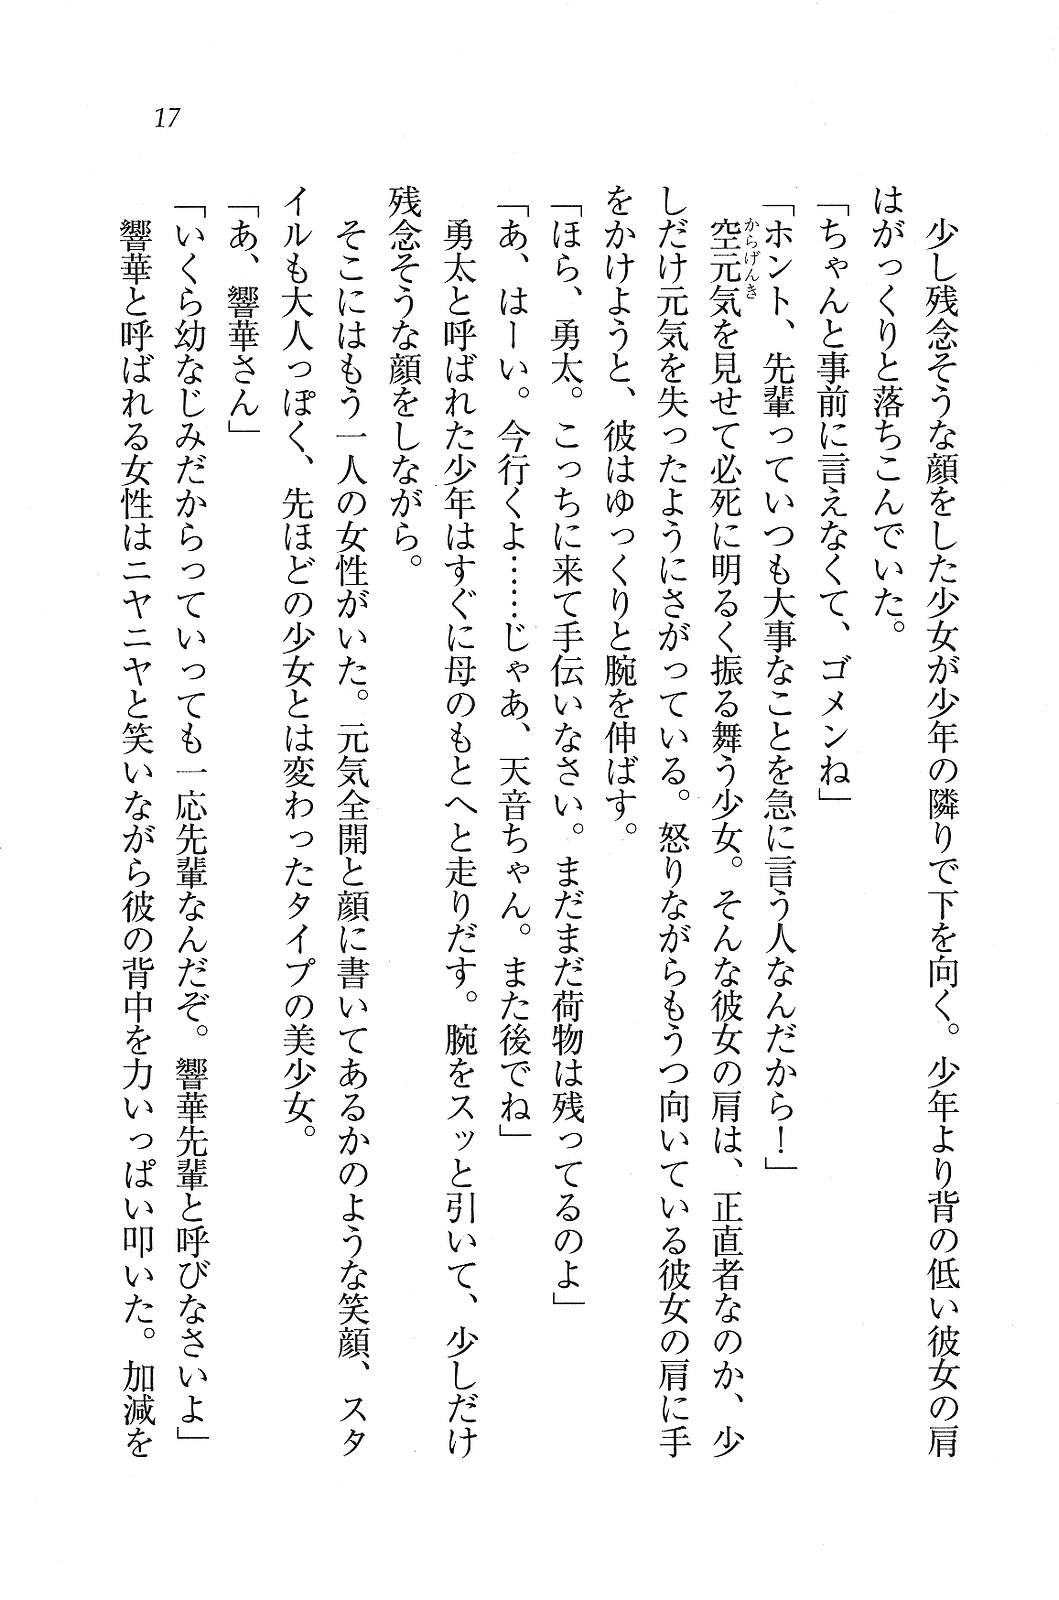 17
少し残念そうな顔をした少女が少年の隣りで下を向く。少年より背の低い彼女の肩
はがっくりと落ちこんでいた。
「ちゃんと事前に言えなくて、ゴメンね」
「ホント、先輩っていつも大事なことを急に言う人なんだから！」
からげんき
空元気を見せて必死に明るく振る舞う少女。そんな彼女の肩は、正直者なのか、少
しだけ元気を失ったようにさがっている。怒りながらもうつ向いている彼女の肩に手
をかけようと、彼はゆっくりと腕を伸ばす。
「ほら、勇太。こっちに来て手伝いなさい。まだまだ荷物は残ってるのよ」
「あ、はーい。今行くよ……じゃあ、天音ちゃん。また後でね」
勇太と呼ばれた少年はすぐに母のもとへと走りだす。腕をスッと引いて、少しだけ
残念そうな顔をしながら。
そこにはもう一人の女性がいた。元気全開と顔に書いてあるかのような笑顔、スタ
イルも大人っぽく、先ほどの少女とは変わったタイプの美少女。
「あ、響華さん」
「いくら幼なじみだからっていっても一応先輩なんだぞ。響華先輩と呼びなさいよ」
響華と呼ばれる女性はニヤニヤと笑いながら彼の背中を力いっぱい叩いた。加減を